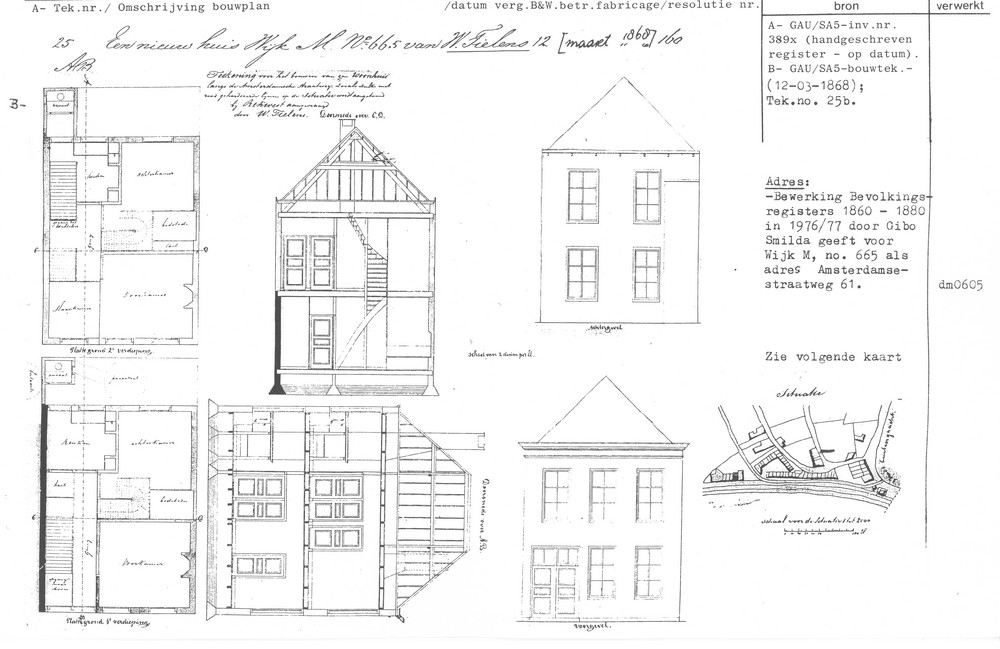 A- Tek.nr./ Omschrijving bouwplan
/datum verg.B&W.betr.fabricage/resolutie nr.
bron
verwerkt
25 Een nieuw huis Wijk M. No 665 van W. Tielens 12 [maart 1868] 160
A- GAU/SA5-inv.nr.
389x (handgeschreven
register - op datum).
B- GAU/SA5-bouwtek.-
(12-03-1868);
Tek.no. 25b.
3-
Teekening voor het bouwen van een Woonhuis
langs de Amsterdamsche Straatweg
bij Rekwest aangevraagd
door W. Tielens.
Doorsnede over C.D.
Adres:
-Bewerking Bevolkings-
registers 1860 - 1880
in 1976/77 door Gibo
Smilda geeft voor
Wijk M, no. 665 als
adres Amsterdamse-
straatweg 61.
dm0605
keuken
achterkamer
bedstede
kast
gang
Slaapkamer
Voorkamer
Plattegrond 2e verdieping
achtergevel
schaal van 2 duim per el.
Zie volgende kaart
Situatie
privaat
Keuken
achterkamer
kast
bedsteden
gang
Voorkamer
Doorsnede over AB
schaal voor de Situatie 1 tot 2000
Plattegrond 1e verdieping
voorgevel.